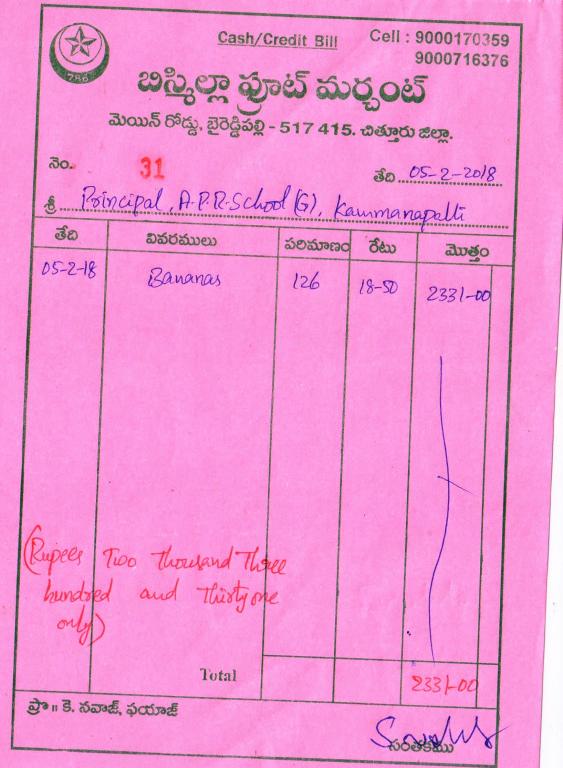 Cash/Credit Bill
Cell : 9000170359
9000716376
786
బిస్మిల్లా ఫ్రూట్ మర్చంట్
మెయిన్ రోడ్డు, బైరెడ్డిపల్లి - 517 415. చిత్తూరు జిల్లా.
నెం. 31 తేది 05-2-2018
శ్రీ Principal, A.P.R.School (G), Kammanapalli
తేది వివరములు పరిమాణం రేటు మొత్తం
05-2-18 Bananas 126 18-50 2331-00
(Rupees Two Thousand Three
hundred and Thirty one
only)
Total 2331-00
ప్రొ॥ కె. నవాజ్, ఫయాజ్
సంతకము